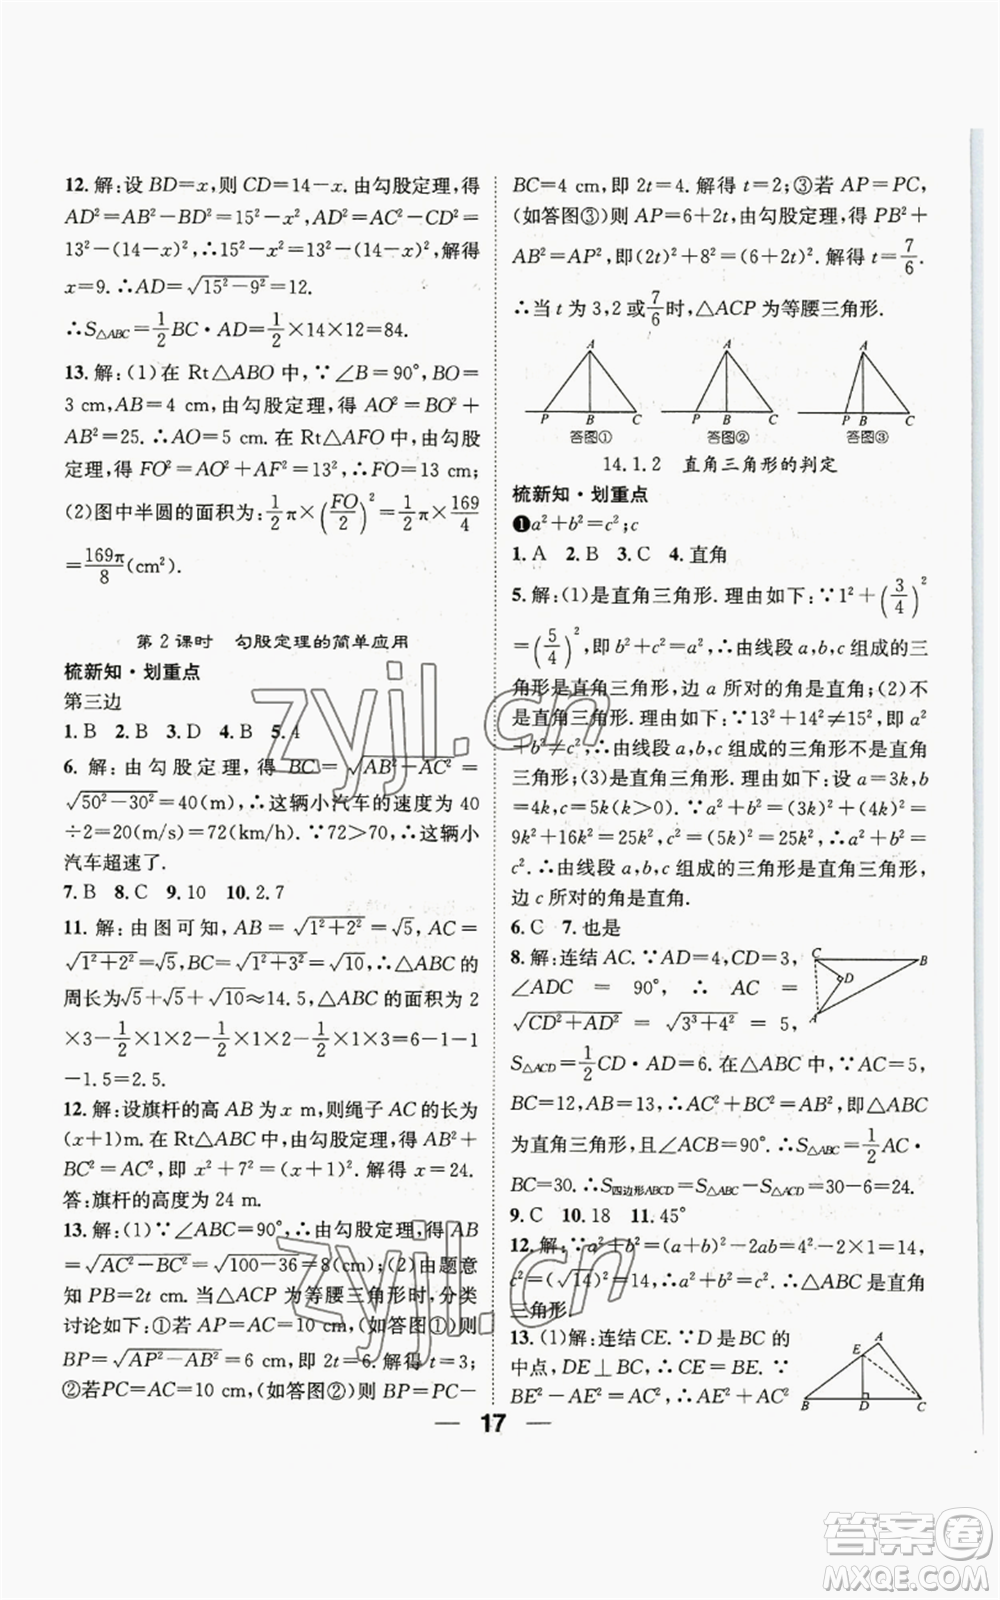 12.解:设 BD=x,则 CD=14-x.由勾股定理,得
AD²=AB²-BD²=15²-x²,AD²=AC²-CD²=
13²-(14-x)²,∴15²-x²=13²-(14-x)²,解得
x=9.∴AD=√(15²-9²)=12.
∴S△ABC=1/2 BC·AD=1/2×14×12=84.
13.解:(1)在 Rt△ABO 中,∵∠B=90°,BO=
3 cm,AB=4 cm,由勾股定理,得 AO²=BO²+
AB²=25.∴AO=5 cm.在 Rt△AFO 中,由勾股
定理,得 FO²=AO²+AF²=13²,∴FO=13 cm;
(2)图中半圆的面积为:1/2π×(FO/2)²=1/2π×169/4
=169π/8(cm²).
第2课时 勾股定理的简单应用
梳新知·划重点
第三边
1.B 2.B 3.D 4.B 5.4
6.解:由勾股定理,得 BC=√(AB²-AC²)=
√(50²-30²)=40(m),∴这辆小汽车的速度为 40
÷2=20(m/s)=72(km/h).∵72>70,∴这辆小
汽车超速了.
7.B 8.C 9.10 10.2.7
11.解:由图可知,AB=√(1²+2²)=√5,AC=
√(1²+2²)=√5,BC=√(1²+3²)=√10,∴△ABC的
周长为√5+√5+√10≈14.5,△ABC的面积为2
×3-1/2×1×2-1/2×1×2-1/2×1×3=6-1-1
-1.5=2.5.
12.解:设旗杆的高 AB 为 x m,则绳子 AC 的长为
(x+1)m.在 Rt△ABC 中,由勾股定理,得 AB²+
BC²=AC²,即 x²+7²=(x+1)².解得 x=24.
答:旗杆的高度为 24 m.
13.解:(1)∵∠ABC=90°,由勾股定理,得 AB
=√(AC²-BC²)=√(100-36)=8(cm);(2)由题意
知 PB=2t cm.当△ACP 为等腰三角形时,分类
讨论如下:①若 AP=AC=10 cm,(如答图①)则
BP=√(AP²-AB²)=6 cm,即 2t=6.解得 t=3;
②若PC=AC=10 cm,(如答图②)则 BP=PC-
BC=4 cm,即 2t=4.解得 t=2;③若 AP=PC,
(如答图③)则 AP=6+2t,由勾股定理,得 PB²+
AB²=AP²,即(2t)²+8²=(6+2t)².解得 t=7/6.
∴当 t 为 3,2 或7/6时,△ACP 为等腰三角形.
A A A
P B C P B C P B C
答图① 答图② 答图③
14.1.2 直角三角形的判定
梳新知·划重点
❶a²+b²=c²;c
1.A 2.B 3.C 4.直角
5.解:(1)是直角三角形.理由如下:∵1²+(3/4)²
=(5/4)²,即b²+c²=a²,∴由线段 a,b,c 组成的三
角形是直角三角形,边 a 所对的角是直角;(2)不
是直角三角形.理由如下:∵13²+14²≠15²,即a²
+b²≠c²,∴由线段 a,b,c 组成的三角形不是直角
三角形;(3)是直角三角形.理由如下:设 a=3k,b=
4k,c=5k(k>0).∵a²+b²=(3k)²+(4k)²=
9k²+16k²=25k²,c²=(5k)²=25k²,∴a²+b²=
c².∴由线段 a,b,c 组成的三角形是直角三角形,
边 c 所对的角是直角.
6.C 7.也是
8.解:连结 AC.∵AD=4,CD=3,
∠ADC = 90°, ∴ AC =
√(CD²+AD²) = √(3³+4²) = 5,
S△ACD=1/2 CD·AD=6.在△ABC 中,∵AC=5,
BC=12,AB=13,∴AC²+BC²=AB²,即△ABC
为直角三角形,且∠ACB=90°.∴S△ABC=1/2 AC·
BC=30.∴S四边形ABCD=S△ABC-S△ACD=30-6=24.
C B D A
9.C 10.18 11.45°
12.解:∵a²+b²=(a+b)²-2ab=4²-2×1=14,
c²=(√14)²=14,∴a²+b²=c²,∴△ABC是直角
三角形.
13.(1)解:连结 CE.∵D 是 BC 的
中点,DE⊥BC,∴CE=BE.∵
BE²-AE²=AC²,∴AE²+AC²
A E B D C
17
zyjl.cn
zyjl.cn
答案圈
MXQE.COM